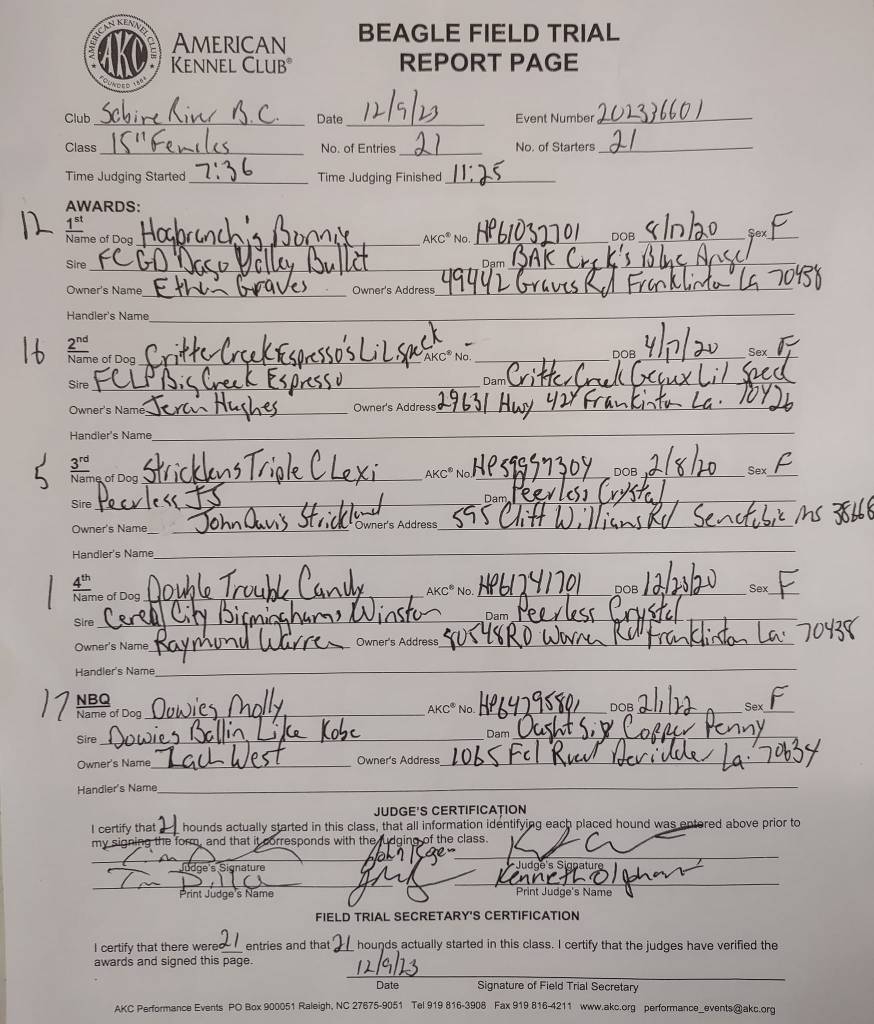 AMERICAN KENNEL CLUB
AKC
FOUNDED 1884
AMERICAN
KENNEL CLUB®
BEAGLE FIELD TRIAL
REPORT PAGE
Club Sabine River B.C. Date 12/9/23 Event Number 202336601
Class 15" Females No. of Entries 21 No. of Starters 21
Time Judging Started 7:36 Time Judging Finished 11:25
AWARDS:
12 1st
Name of Dog Hogbranch's Bonnie AKC® No. HP61032701 DOB 8/17/20 Sex F
Sire FCGD Dago Valley Bullet Dam BAK Creek's Blue Angel
Owner's Name Ethan Graves Owner's Address 49442 Graves Rd Franklinton La 70438
Handler's Name
16 2nd
Name of Dog CritterCreek Espresso's Lil Speck AKC® No. DOB 4/17/20 Sex F
Sire FCLP Big Creek Espresso Dam Critter Creek Geaux Lil Speck
Owner's Name Jeran Hughes Owner's Address 29631 Hwy 424 Frankinton La. 70426
Handler's Name
5 3rd
Name of Dog Stricklens Triple C Lexi AKC® No. HP59957304 DOB 2/8/20 Sex F
Sire Peerless JJ Dam Peerless Crystal
Owner's Name John Davis Strickland Owner's Address 595 Cliff Willians Rd Senatobia Ms 38668
Handler's Name
1 4th
Name of Dog Double Trouble Candy AKC® No. HP61741701 DOB 12/20/20 Sex F
Sire Cereal City Birminghams Winston Dam Peerless Crystal
Owner's Name Raymond Warren Owner's Address 50548 RD Warren Rd Franklinton La. 70438
Handler's Name
17 NBQ
Name of Dog Dowies Molly AKC® No. HP64795801 DOB 2/1/22 Sex F
Sire Dowies Ballin Like Kobe Dam Ought Six Copper Penny
Owner's Name Zach West Owner's Address 1065 Fcl Road Deridder La. 70634
Handler's Name
JUDGE'S CERTIFICATION
I certify that 21 hounds actually started in this class, that all information identifying each placed hound was entered above prior to
my signing the form, and that it corresponds with the judging of the class.
John Rogers
Judge's Signature Judge's Signature
Tim Kenneth Olphant
Print Judge's Name Print Judge's Name
FIELD TRIAL SECRETARY'S CERTIFICATION
I certify that there were 21 entries and that 21 hounds actually started in this class. I certify that the judges have verified the
awards and signed this page.
12/9/23
Date Signature of Field Trial Secretary
AKC Performance Events PO Box 900051 Raleigh, NC 27675-9051 Tel 919 816-3908 Fax 919 816-4211 www.akc.org performance_events@akc.org